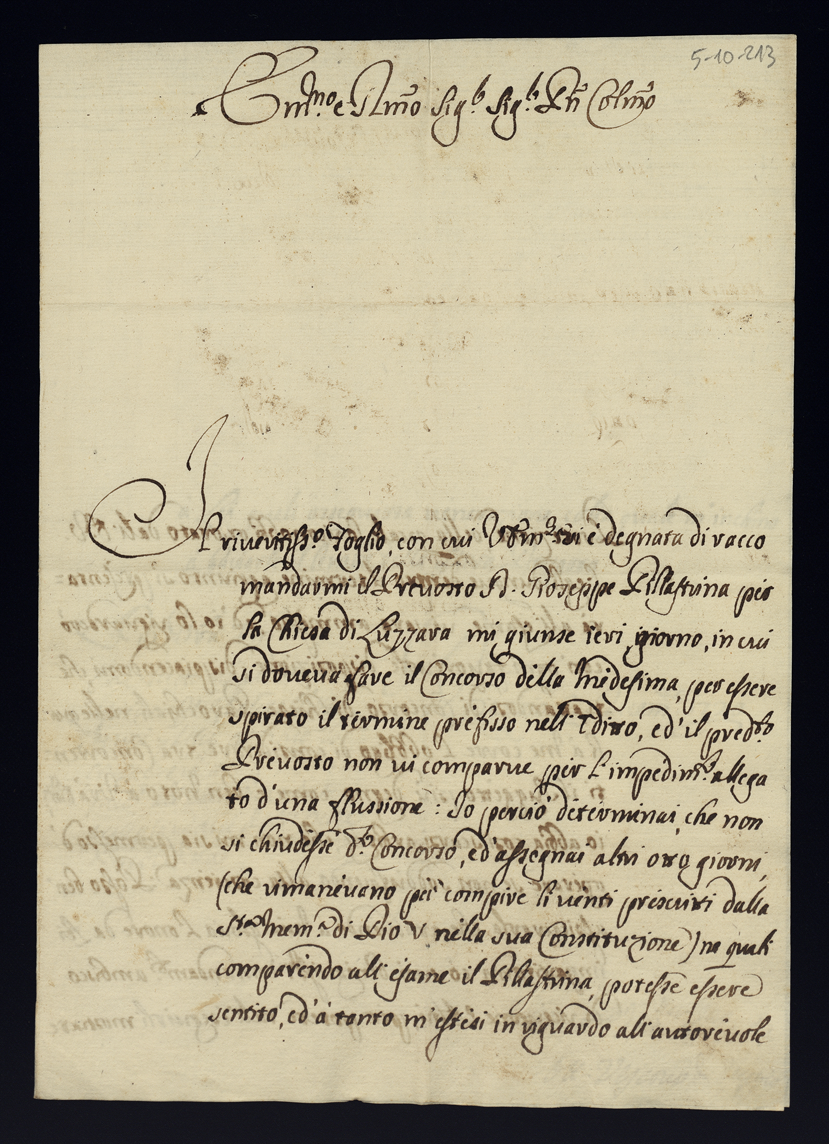 5-10-213
Em.mo e R.mo Sig.r Sig.r P̃n Col̃mo
Il riveritiss.o Foglio, con cui V. Em.za si è degnata di racco
mandarmi il Prevosto D. Gioseppe Pilastrina per
la Chiesa di Luzzara mi giunse ieri, giorno, in cui
si doveva fare il Concorso della Medesima, per essere
spirato il termine prefisso nell'Editto, ed' il pred.to
Prevosto non vi comparve per l'impedim.to allega
to d'una flussione: Io perciò determinai, che non
si chiudesse d.to Concorso, ed' assegnai altri otto giorni,
(che rimanevano per compire li venti prescritti dalla
S.ta Mem.a di Pio V nella sua Constituzione) ne quali
comparendo all'esame il Pilastrina, potesse essere
sentito, ed' à tanto m'estesi in riguardo all'autorevole